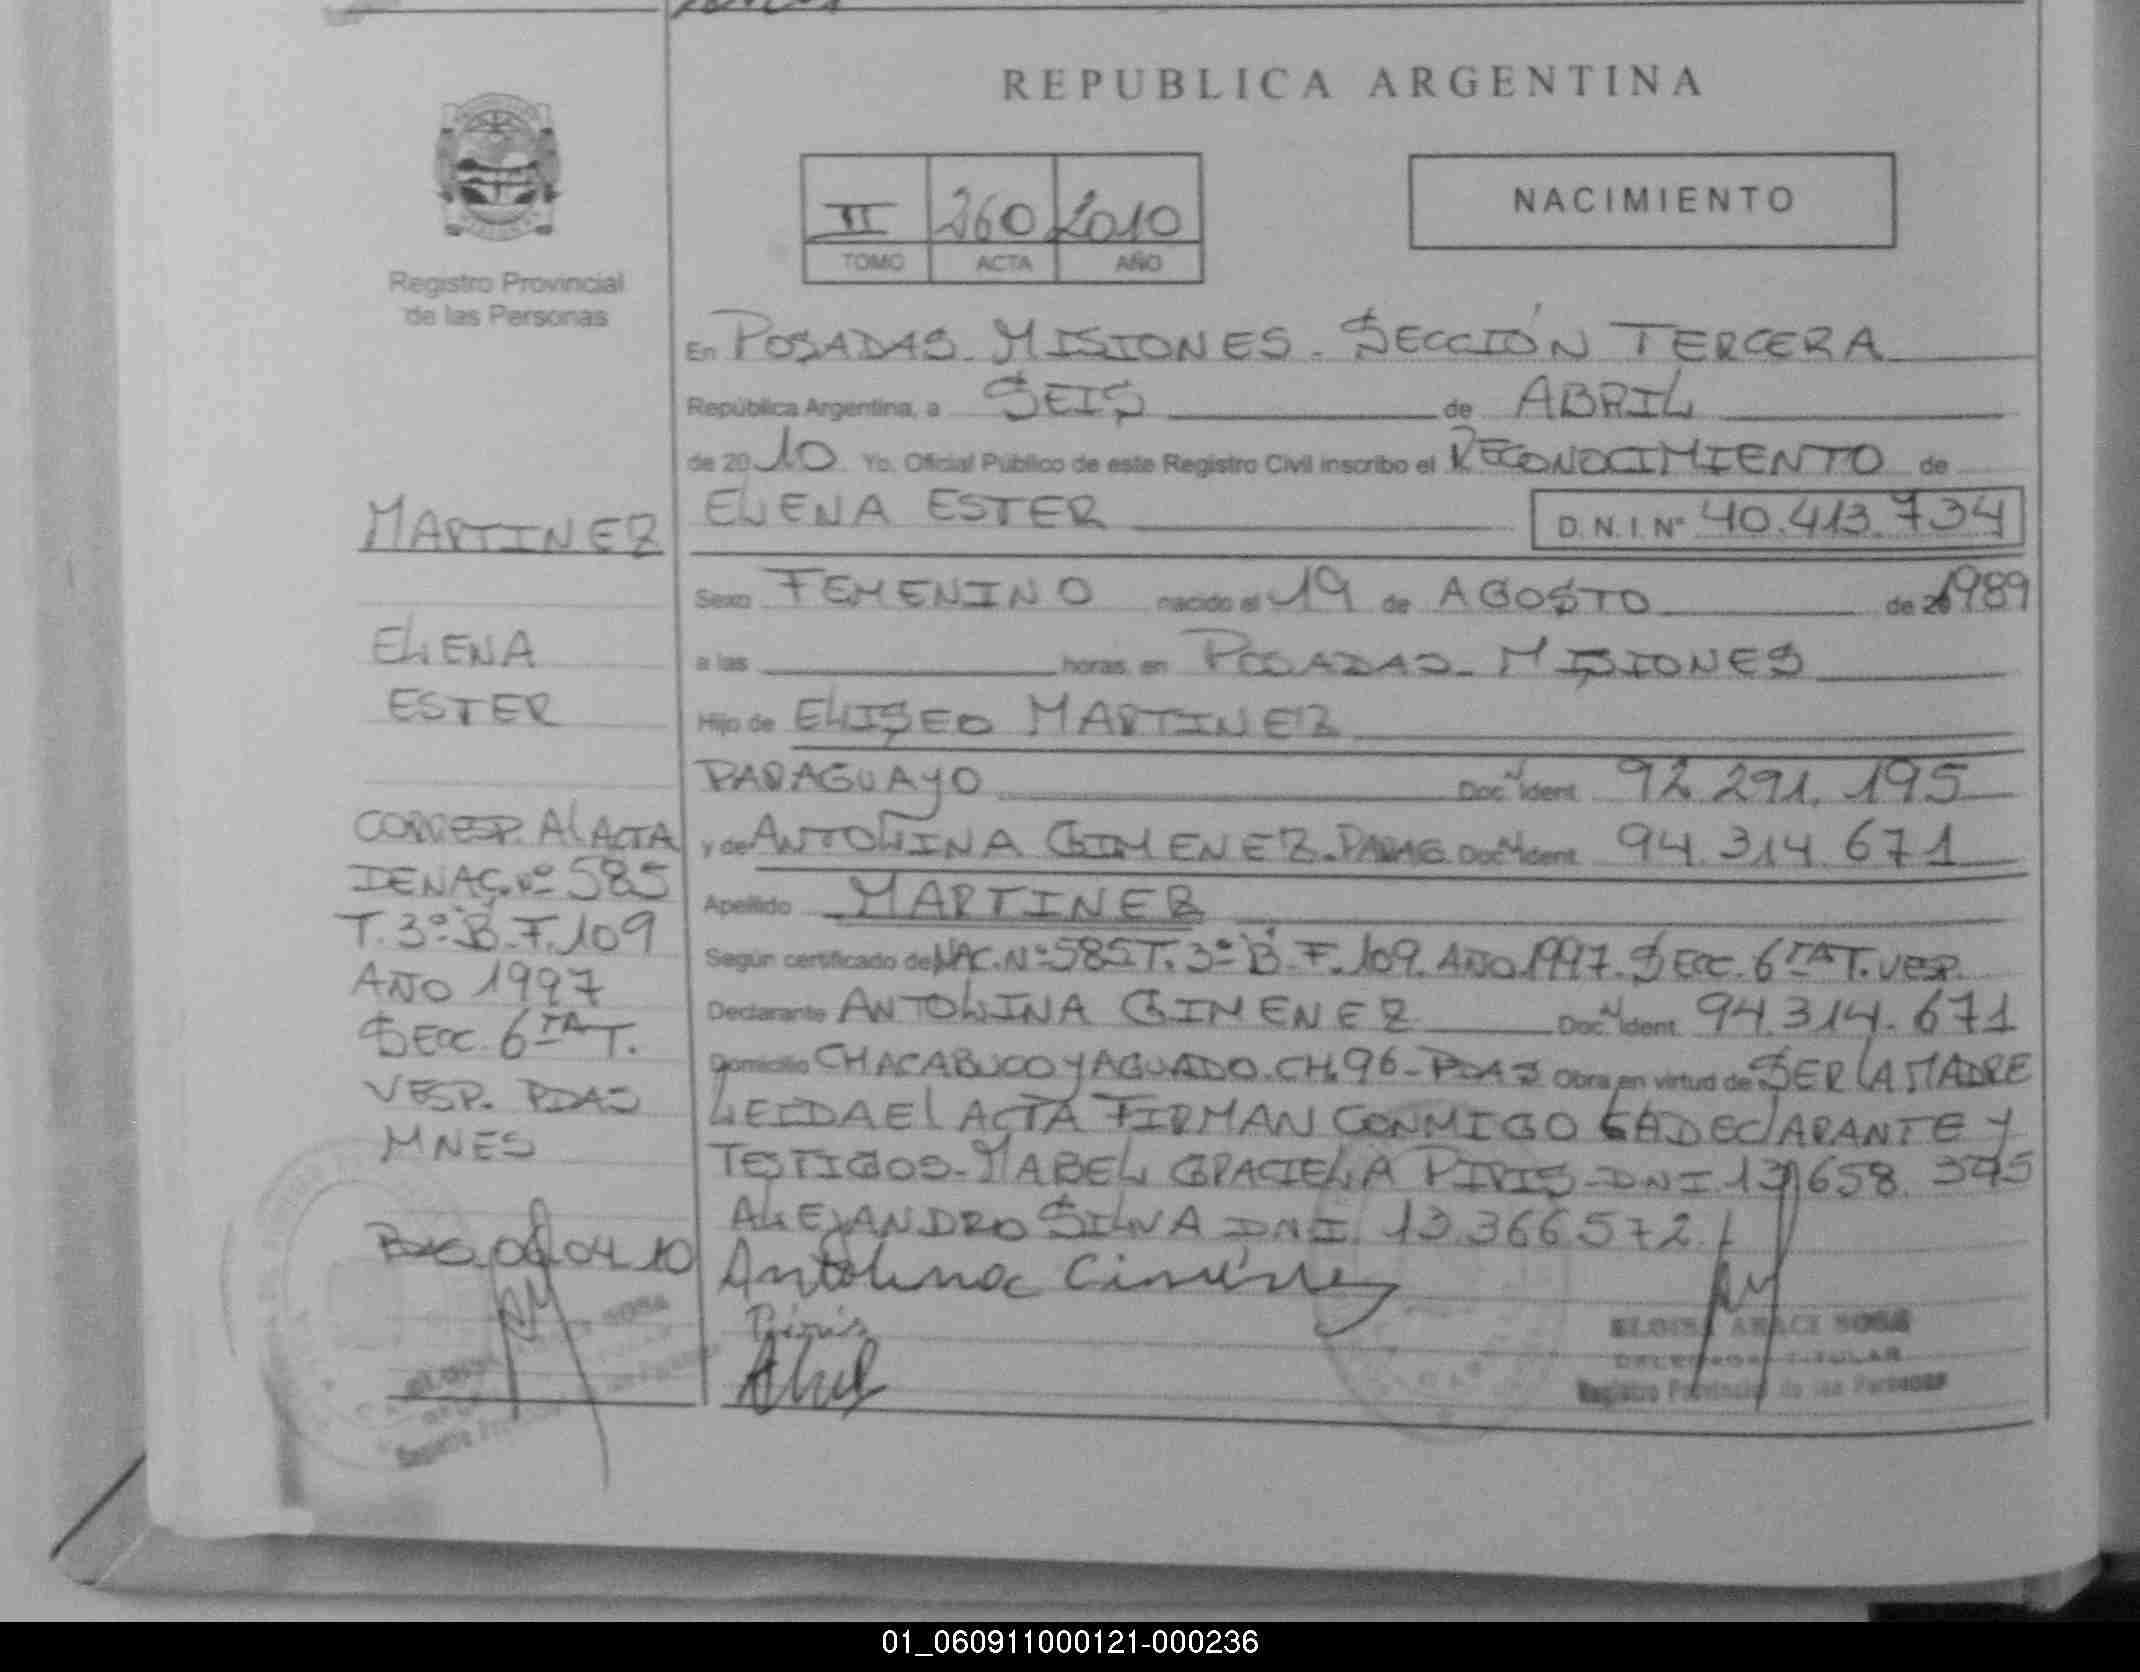 REPUBLICA ARGENTINA
Registro Provincial
de las Personas
II 260 2010
TOMO ACTA AÑO
NACIMIENTO
En POSADAS - MISIONES - SECCIÓN TERCERA
República Argentina, a SEIS de ABRIL
de 2010 Yo, Oficial Público de este Registro Civil inscribo el RECONOCIMIENTO de
ELENA ESTER D.N.I. Nº 40.413.734
Sexo FEMENINO nacido el 19 de AGOSTO de 1989
a las horas, en POSADAS - MISIONES
Hijo de ELISEO MARTINEZ
PARAGUAYO Doc. N Ident. 92.291.195
y de ANTOLINA GIMENEZ - PARAG. Doc. N Ident. 94.314.671
Apellido MARTINEZ
Según certificado de NAC. Nº 585 T. 3º "B" F. 109. AÑO 1997. SECC. 6TA T. VESP.
Declarante ANTOLINA GIMENEZ Doc. N Ident. 94.314.671
Domicilio CHACABUCO Y AGUADO. CH. 96 - PDAS Obra en virtud de SER LA MADRE
LEIDA EL ACTA FIRMAN CONMIGO LA DECLARANTE Y
TESTIGOS - MABEL GRACIELA PIRIS - DNI. 13.658.
ALEJANDRO SILVA DNI. 13.366.572.
Antolina Giménez
Piris
ELOISA ARACI SOSA
TITULAR
Registro Provincial de las Personas
MARTINEZ
ELENA
ESTER
CORRESP. AL ACTA
DE NAC. Nº 585
T. 3º "B" F. 109
AÑO 1997
SECC. 6TA T.
VESP. PDAS
MNES
06.04.10
SOSA
01_060911000121-000236